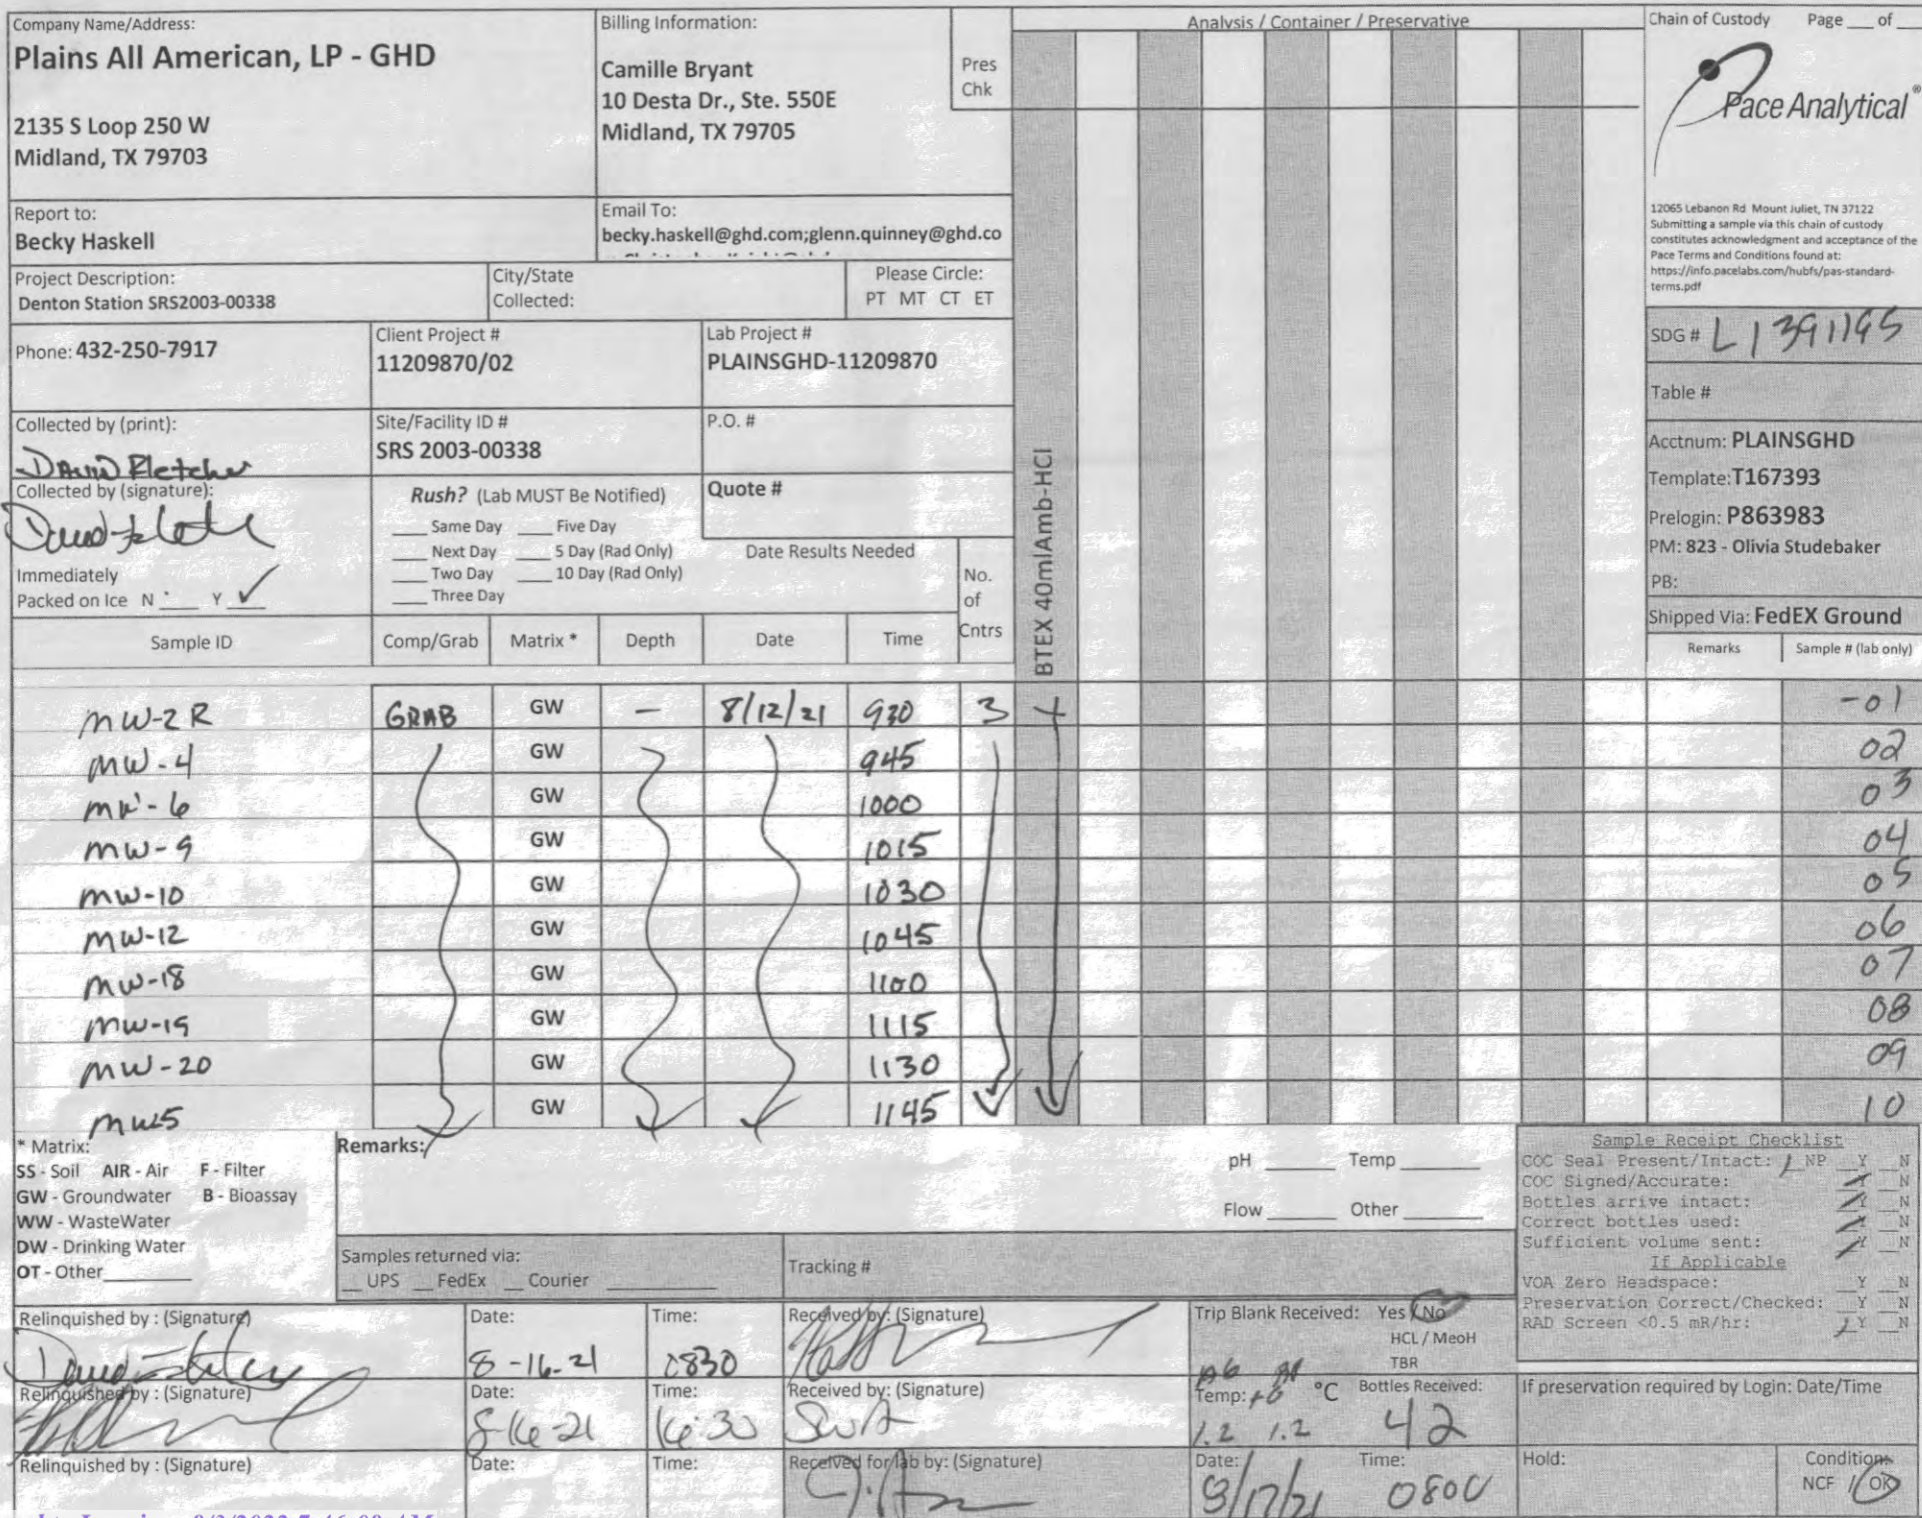 Company Name/Address:
Plains All American, LP - GHD
2135 S Loop 250 W
Midland, TX 79703
Billing Information:
Camille Bryant
10 Desta Dr., Ste. 550E
Midland, TX 79705
Pres
Chk
Analysis / Container / Preservative
Chain of Custody Page ___ of ___
Pace Analytical®
12065 Lebanon Rd Mount Juliet, TN 37122
Submitting a sample via this chain of custody
constitutes acknowledgment and acceptance of the
Pace Terms and Conditions found at:
https://info.pacelabs.com/hubfs/pas-standard-
terms.pdf
Report to:
Becky Haskell
Email To:
becky.haskell@ghd.com;glenn.quinney@ghd.co
Project Description:
Denton Station SRS2003-00338
City/State
Collected:
Please Circle:
PT MT CT ET
Phone: 432-250-7917
Client Project #
11209870/02
Lab Project #
PLAINSGHD-11209870
SDG # L1391195
Table #
Collected by (print):
David Fletcher
Site/Facility ID #
SRS 2003-00338
P.O. #
Acctnum: PLAINSGHD
Template:T167393
Prelogin: P863983
PM: 823 - Olivia Studebaker
PB:
Shipped Via: FedEX Ground
Collected by (signature):
Rush? (Lab MUST Be Notified)
___ Same Day ___ Five Day
___ Next Day ___ 5 Day (Rad Only)
___ Two Day ___ 10 Day (Rad Only)
___ Three Day
Quote #
Date Results Needed
Immediately
Packed on Ice N ___ Y ✓
No.
of
Cntrs
BTEX 40mlAmb-HCl
Sample ID Comp/Grab Matrix * Depth Date Time Remarks Sample # (lab only)
MW-2R GRAB GW - 8/12/21 930 3 -01
MW-4 GW 945 02
MW-6 GW 1000 03
MW-9 GW 1015 04
MW-10 GW 1030 05
MW-12 GW 1045 06
MW-18 GW 1100 07
MW-19 GW 1115 08
MW-20 GW 1130 09
MW-5 GW 1145 10
* Matrix:
SS - Soil AIR - Air F - Filter
GW - Groundwater B - Bioassay
WW - WasteWater
DW - Drinking Water
OT - Other
Remarks:
pH ___ Temp ___
Flow ___ Other ___
Samples returned via:
__ UPS __ FedEx __ Courier
Tracking #
Sample Receipt Checklist
COC Seal Present/Intact: NP Y N
COC Signed/Accurate: Y N
Bottles arrive intact: Y N
Correct bottles used: Y N
Sufficient volume sent: Y N
If Applicable
VOA Zero Headspace: Y N
Preservation Correct/Checked: Y N
RAD Screen <0.5 mR/hr: Y N
Relinquished by : (Signature)
Date: 8-16-21
Time: 0830
Received by: (Signature)
Trip Blank Received: Yes / No
HCL / MeoH
TBR
Relinquished by : (Signature)
Date: 8-16-21
Time: 16:30
Received by: (Signature)
Temp: °C
1.2 1.2
Bottles Received:
42
If preservation required by Login: Date/Time
Relinquished by : (Signature)
Date:
Time:
Received for lab by: (Signature)
Date: 8/17/21
Time: 0800
Hold:
Condition:
NCF / OK